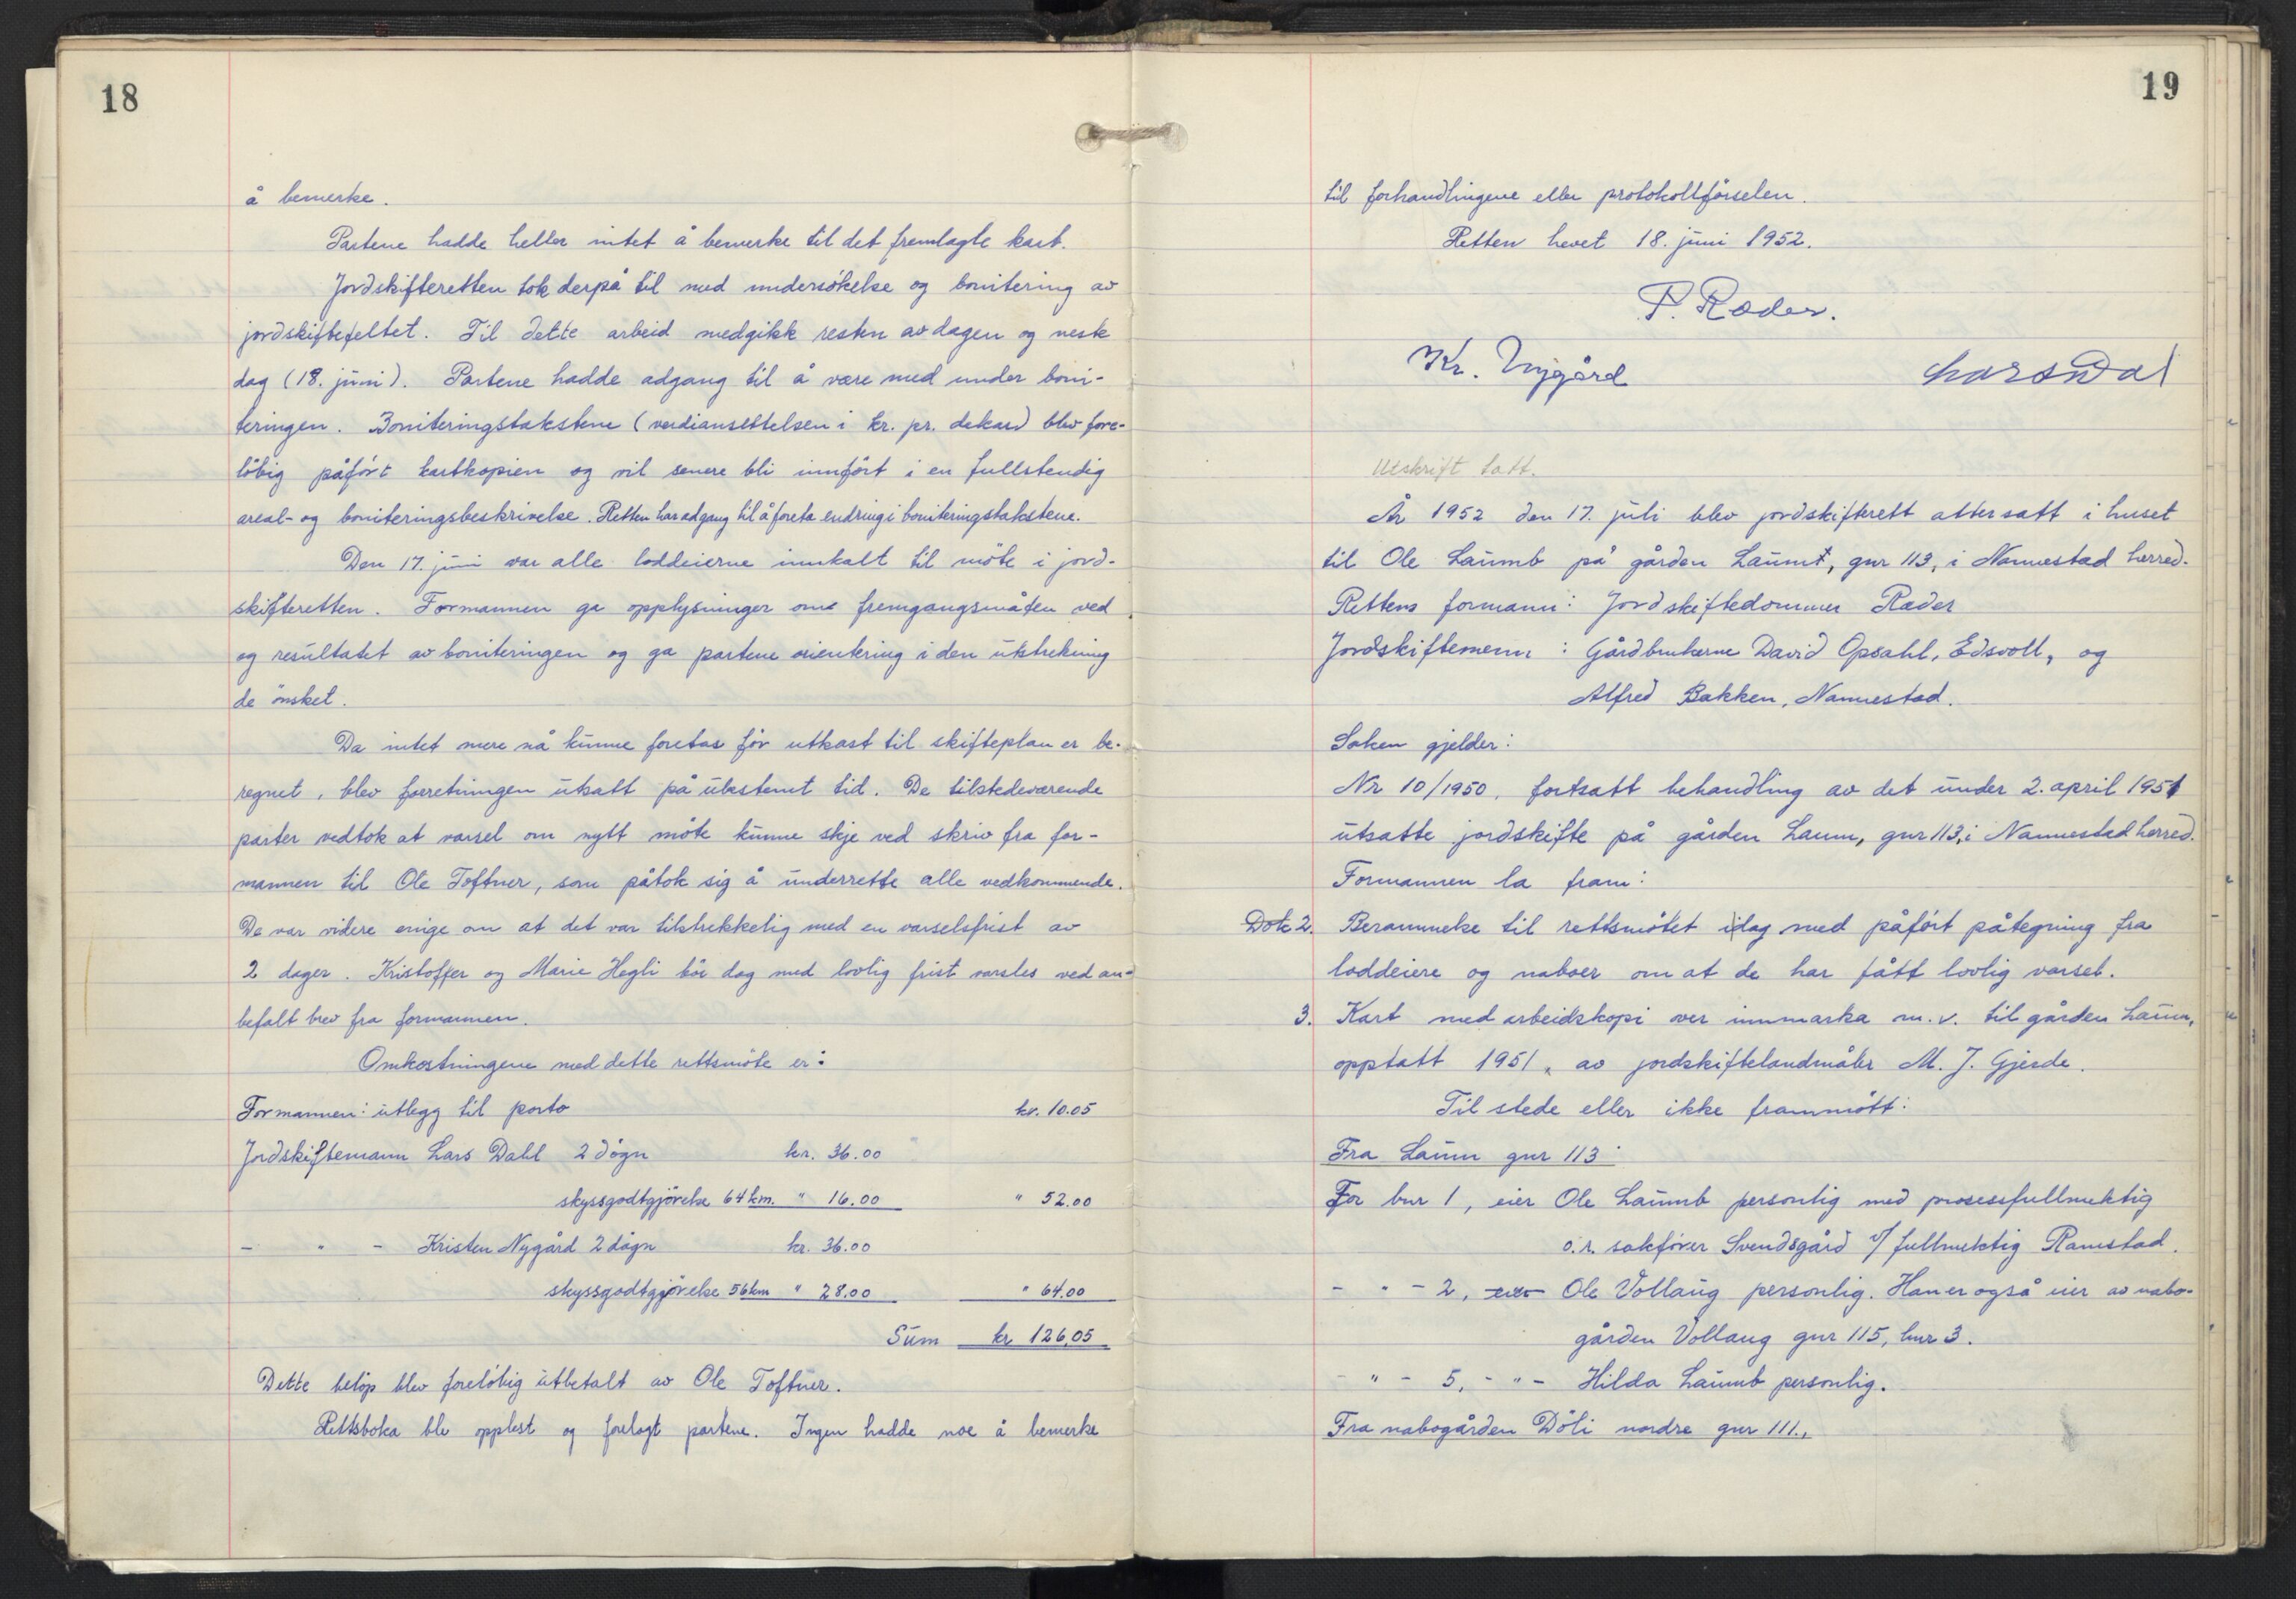 18
å bemerke.
Partene hadde heller intet å bemerke til det fremlagte kart.
Jordskifteretten tok derpå til med undersökelse og bonitering av
jordskiftefeltet. Til dette arbeid medgikk resten av dagen og neste
dag (18. juni). Partene hadde adgang til å være med under boni-
teringen. Boniteringstakstene (verdiansettelsen i kr. pr. dekar) blev fore-
löbig påfört kartkopien og vil senere bli innfört i en fullstendig
areal- og boniteringsbeskrivelse. Retten har adgang til å foreta endring i boniteringstakstene.
Den 17. juni var alle loddeierne innkalt til möte i jord-
skifteretten. Formannen ga opplysninger om fremgangsmåten ved
og resultatet av boniteringen og ga partene orientering i den utstrekning
de önsket.
Da intet mere nå kunne foretas för utkast til skifteplan er be-
regnet, blev forretningen utsatt på ubestemt tid. De tilstedeværende
parter vedtok at varsel om nytt möte kunne skje ved skriv fra for-
mannen til Ole Toftner, som påtok sig å underrette alle vedkommende.
De var videre enige om at det var tilstrekkelig med en varselsfrist av
2 dager. Kristoffer og Marie Hegli bör dog med lovlig frist varsles ved an-
befalt brev fra formannen.
Omkostningene med dette rettsmöte er:
Formannen: utlegg til porto kr. 10.05
Jordskiftemann Lars Dahl 2 dögn kr. 36.00
skyssgodtgjörelse 64 km. " 16.00 " 52.00
- " - Kristen Nygård 2 dögn kr. 36.00
skyssgodtgjörelse 56 km " 28.00 " 64.00
Sum kr 126.05
Dette belöp blev forelöbig utbetalt av Ole Toftner.
Rettsboka ble opplest og forelagt partene. Ingen hadde noe å bemerke
19
til forhandlingene eller protokollförselen.
Retten hevet 18. juni 1952.
P. Ræder.
Kr. Nygård Lars Dal
Utskrift tatt.
År 1952 den 17. juli blev jordskifterett atter satt i huset
til Ole Laumb på gården Laum, gnr 113, i Nannestad herred.
Rettens formann: Jordskiftedommer Ræder
Jordskiftemenn: Gårdbrukerne David Opsahl, Eidsvoll, og
Alfred Bakken, Nannestad.
Saken gjelder:
Nr 10/1950, fortsatt behandling av det under 2. april 1951
utsatte jordskifte på gården Laum, gnr 113, i Nannestad herred.
Formannen la fram:
Dok 2. Berammelse til rettsmötet idag med påfört påtegning fra
loddeiere og naboer om at de har fått lovlig varsel.
3. Kart med arbeidskopi over innmarka m.v. til gården Laum,
opptatt 1951, av jordskiftelandmåler M. J. Gjesde.
Til stede eller ikke frammött:
Fra Laum gnr 113:
For bnr 1, eier Ole Laumb personlig med prosessfullmektig
o.r. sakförer Svendsgård v/ fullmektig Ramstad.
- " - 2, eier Ole Vollaug personlig. Han er også eier av nabo-
gården Vollaug gnr 115, bnr 3.
- " - 5, - " - Hilda Laumb personlig.
Fra nabogården Döli nordre gnr 111.,